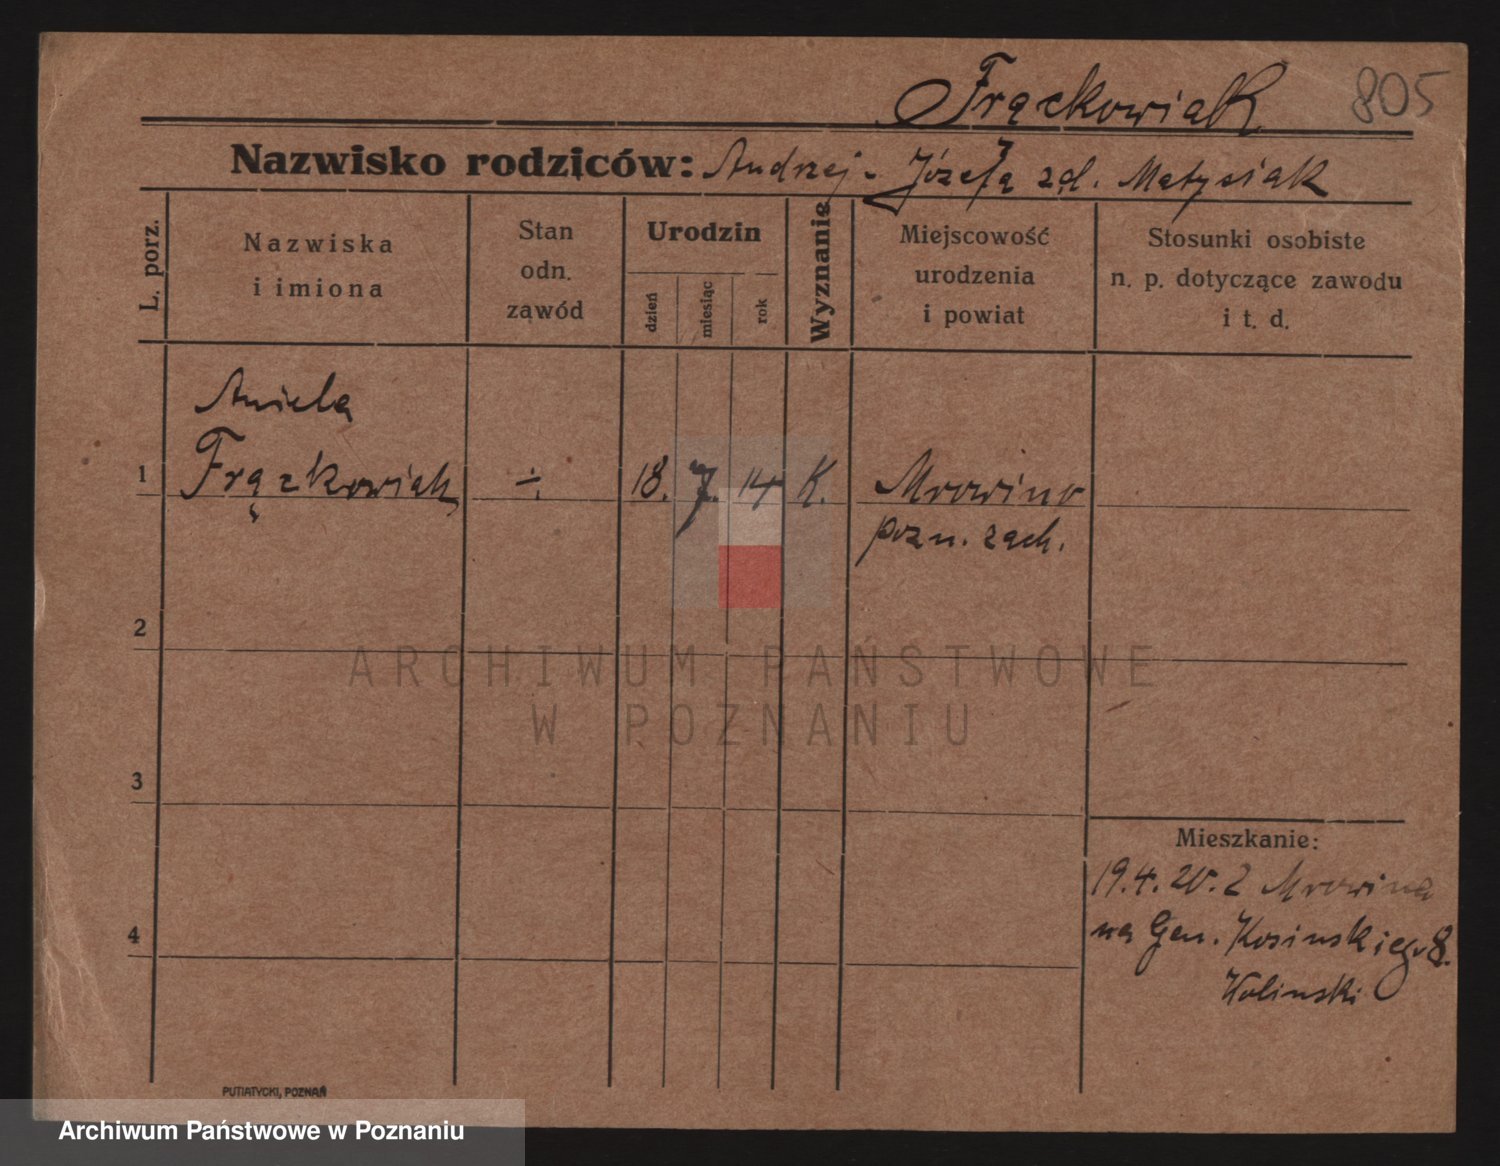 Frąckowiak 805
Nazwisko rodziców: Andrzej - Józefa zd. Matysiak
L. porz.
Nazwiska
i imiona
Stan
odn.
zawód
Urodzin
dzień
miesiąc
rok
Wyznanie
Miejscowość
urodzenia
i powiat
Stosunki osobiste
n. p. dotyczące zawodu
i t. d.
Aniela
1 Frąckowiak ÷ 18. 7. 14 K. Mrowino
pozn. zach.
2
3
4
Mieszkanie:
19.4.20. z Mrowina
na Gen. Kosinskiego 8.
Wolinski
PUTIATYCKI, POZNAŃ
ARCHIWUM PAŃSTWOWE
W POZNANIU
Archiwum Państwowe w Poznaniu